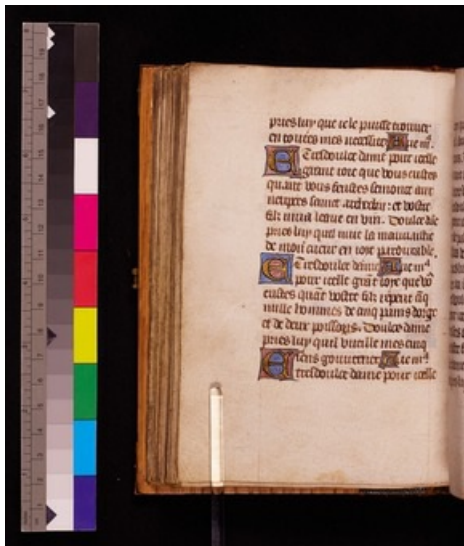 pries luy que ie le puisse trouuer
en toutes mes necessites Aue mª
E tresdoulce dame pour icelle
grant ioie que vous eustes
quant vous feustes semonce aux
nopces saint archedin: et vostre
filz mua leaue en vin. Doulce dãe
pries luy quil mue la mauuaistie
de mon cueur en ioye pardurable.
E tresdoulce dame Aue mª
pour icelle grãt ioye que võ
eustes quãt vostre filz repeut cĩq
mille hommes de cinq pains dorge
et de deux poissons. Doulce dame
pries luy quil vueille mes cinq
sens gouuerner Aue mª
E tresdoulce dame pour icelle